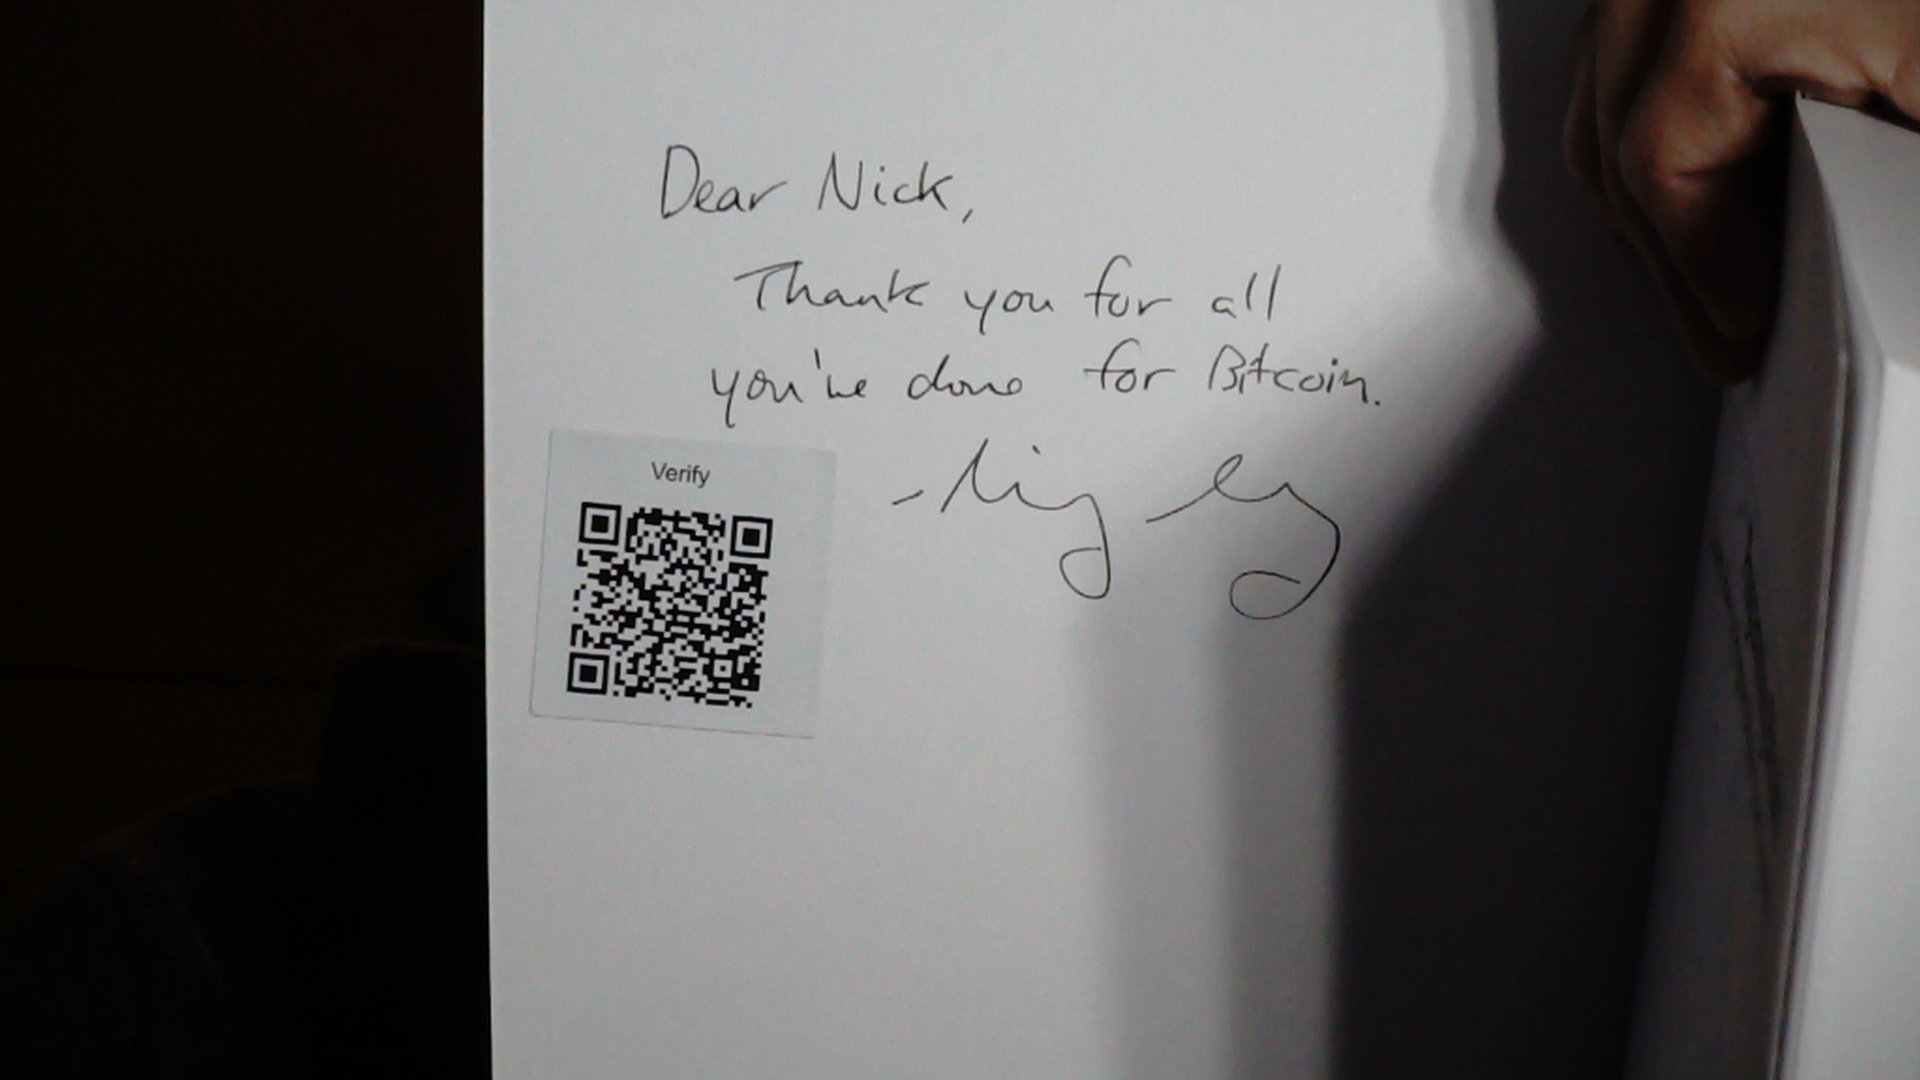 Dear Nick,
Thank you for all
you've done for Bitcoin.
Verify